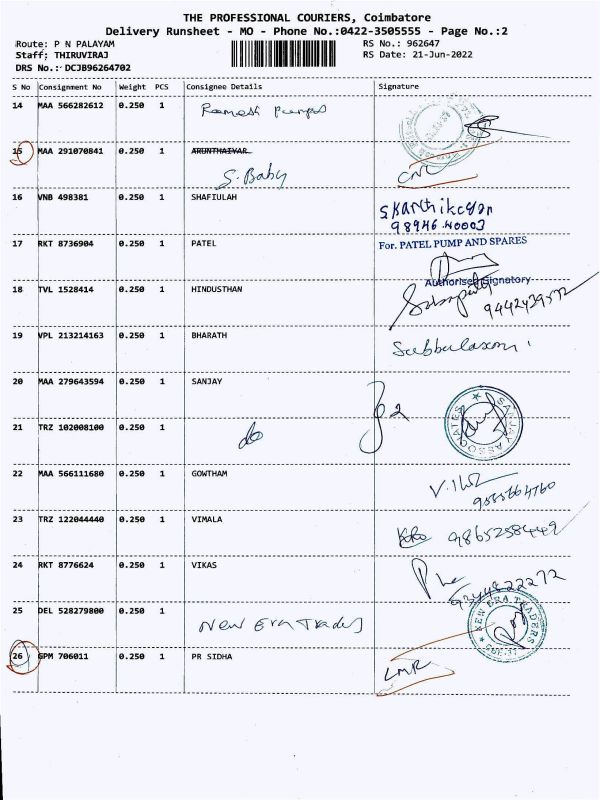 THE PROFESSIONAL COURIERS, Coimbatore
Delivery Runsheet - MO - Phone No.:0422-3505555 - Page No.:2
Route: P N PALAYAM RS No.: 962647
Staff: THIRUVIRAJ RS Date: 21-Jun-2022
DRS No.: DCJB96264702
S No Consignment No Weight PCS Consignee Details Signature
14 MAA 566282612 0.250 1 Ramesh Pumps
15 MAA 291070841 0.250 1 ARUNTHAIVAR
S. Baby
16 VNB 498381 0.250 1 SHAFIULAH
S Karthikeyan
98946 40003
17 RKT 8736904 0.250 1 PATEL For. PATEL PUMP AND SPARES
Authorised Signatory
18 TVL 1528414 0.250 1 HINDUSTHAN
19 VPL 213214163 0.250 1 BHARATH
Subbulaxmi
20 MAA 279643594 0.250 1 SANJAY
SANJAY ASSOCIATES
21 TRZ 102008100 0.250 1 do
22 MAA 566111680 0.250 1 GOWTHAM
23 TRZ 122044440 0.250 1 VIMALA
24 RKT 8776624 0.250 1 VIKAS
25 DEL 528279800 0.250 1 New Era Traders
NEW ERA TRADERS
26 GPM 706011 0.250 1 PR SIDHA
LMR